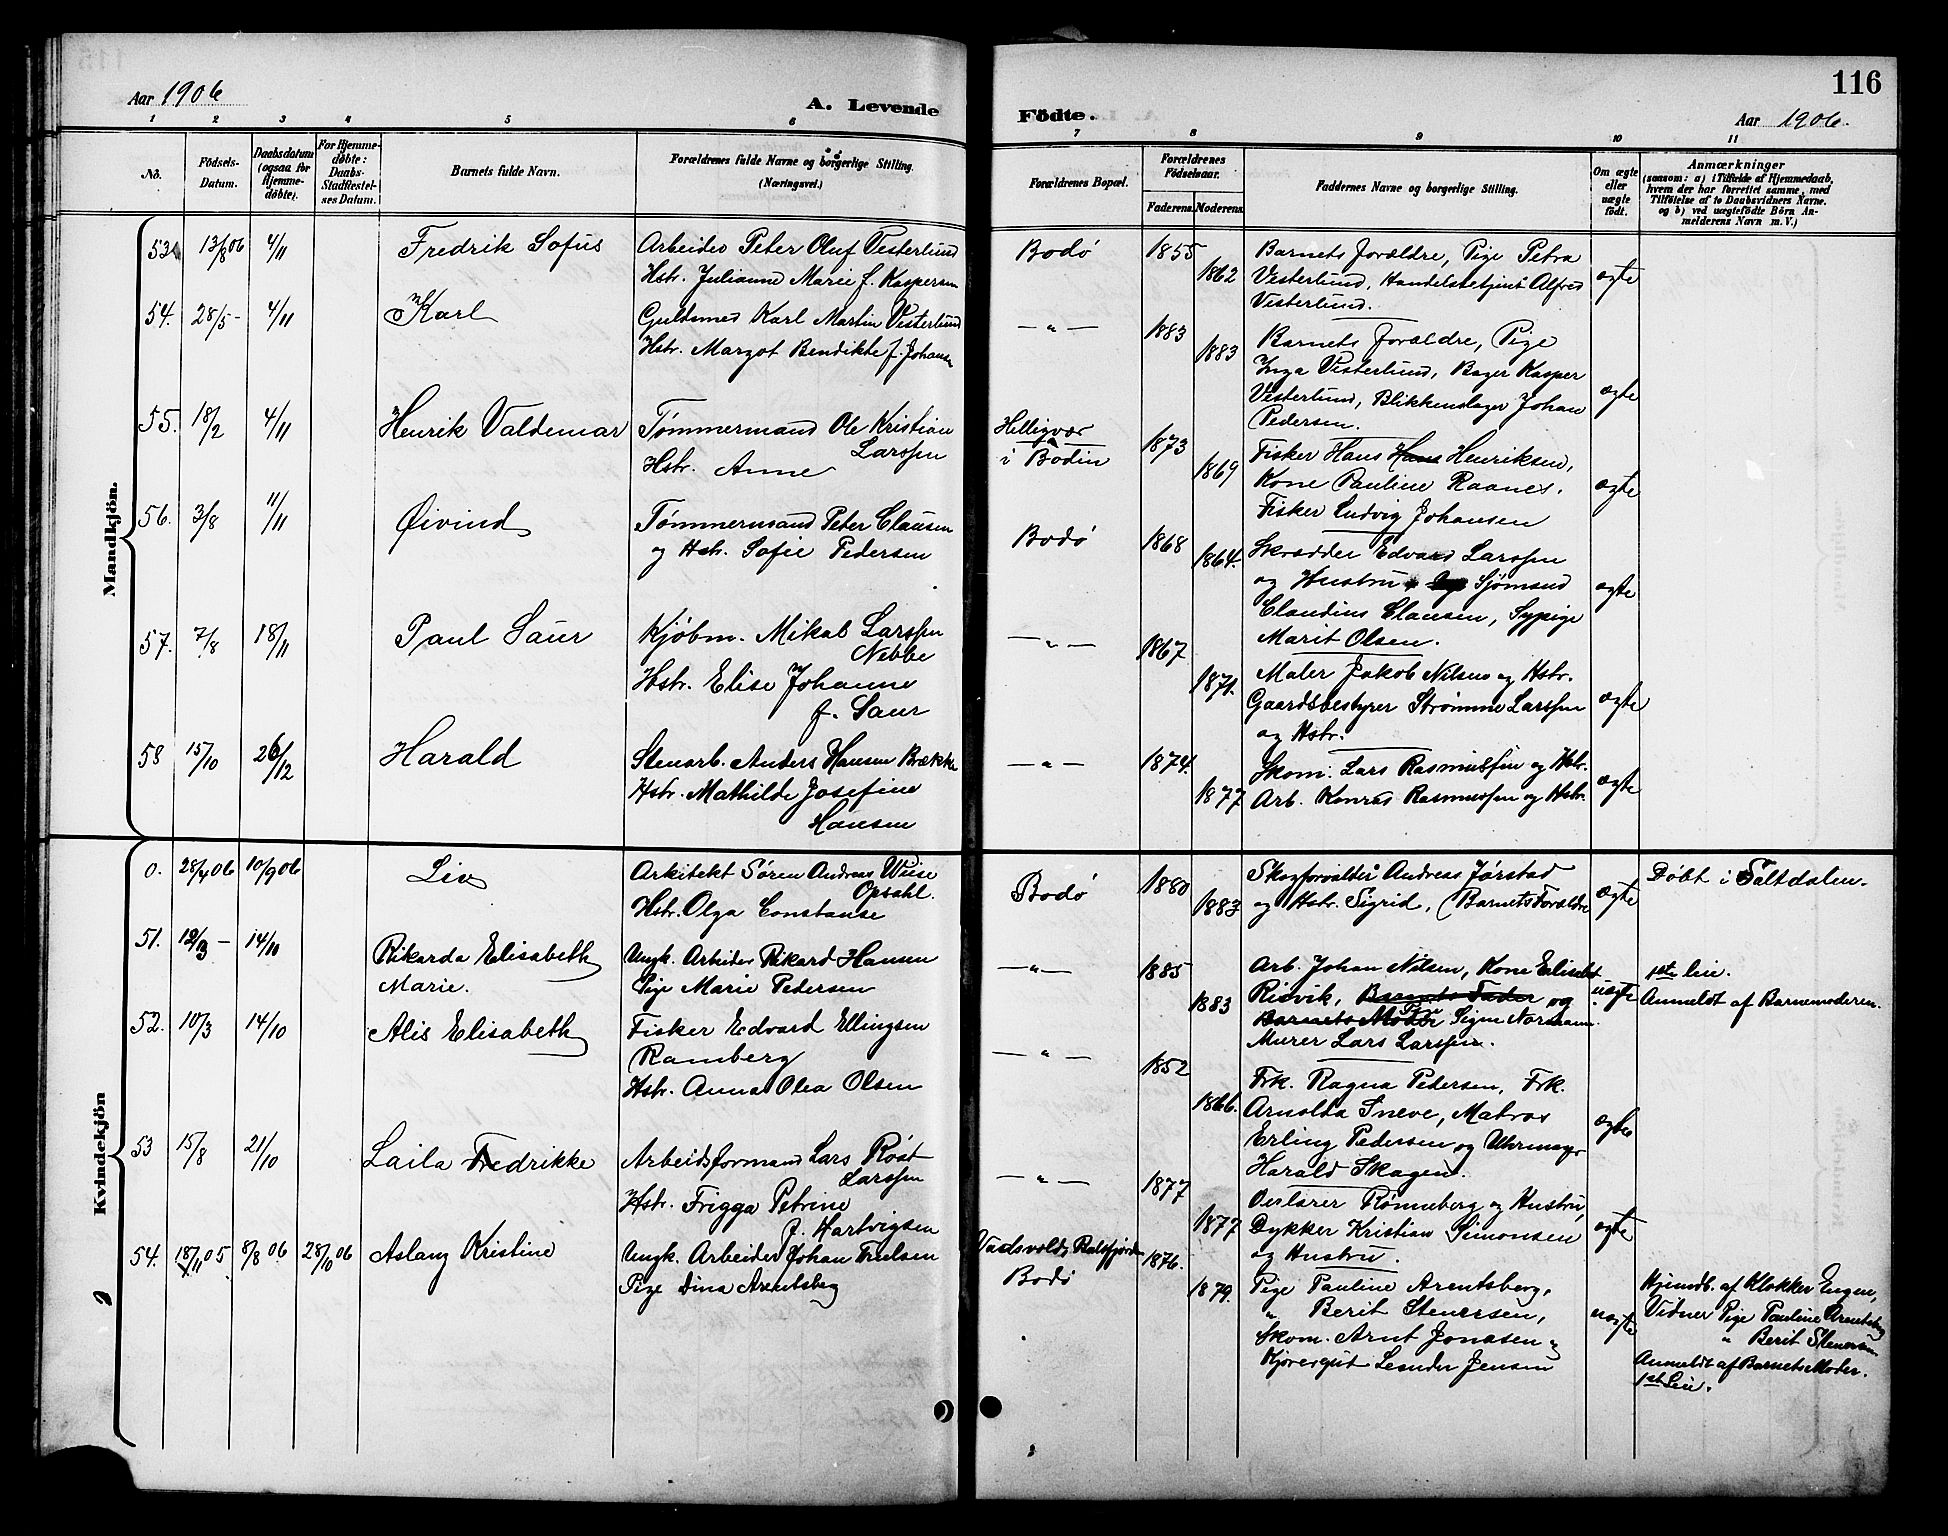 116
Aar 1906
A. Levende
Födte.
Aar 1906.
1 2 3 4 5 6 7 8 9 10 11
No.
Födsels-Datum.
Daabsdatum (ogsaa for Hjemme-døbte).
For Hjemme-døbte: Daabs-Stadfæstel-ses Datum.
Barnets fulde Navn.
Forældrenes fulde Navne og borgerlige Stilling.
(Næringsvei.)
Forældrenes Bopæl.
Forældrenes Födselsaar.
Faderens. Moderens.
Faddernes Navne og borgerlige Stilling.
Om ægte eller uægte født.
Anmærkninger
(saasom: a) i Tilfælde af Hjemmedaab,
hvem der har forrettet samme, med
Tilföielse af to Daabsvidners Navne.
og b) ved uægtefödte Börn An-
melderens Navn m. V.)
Mandkjön.
53. 13/8 06 4/11 Fredrik Sofus
Arbeider Peter Oluf Vesterlund
Hstr. Julianne Marie f. Kaspersen
Bodø 1855 1862
Barnets Forældre, Pige Petra
Vesterlund, Handelsbetjent Alfred
Vesterlund.
ægte
54. 28/5 - 4/11 Karl
Guldsmed Karl Martin Vesterlund
Hstr. Margot Bendikte f. Johansen
— " — 1883 1883
Barnets Forældre, Pige
Inga Vesterlund, Bager Kasper
Vesterlund, Blikkenslager Johan
Pedersen.
ægte
55. 18/2 4/11 Henrik Valdemar
Tømmermand Ole Kristian
Larssen
Hstr. Anne
Helligvær
i Bodin 1873 1869
Fisker Hans Hans Henriksen,
Kone Pauline Raanes.
Fisker Ludvig Johansen
ægte
56. 3/8 11/11 Øivind
Tømmermand Peter Clausen
og Hstr. Sofie Pedersen
Bodø 1868 1864.
Skrædder Edvard Larssen
og Hustru, Sjømand
Claudius Clausen, Sypige
Marit Olsen.
ægte
57. 7/8 18/11 Paul Saur
Kjøbm. Mikal Larssen
Nebbe
Hstr. Elise Johanne
f. Saur
— " — 1867 1871.
Maler Jakob Nilsen og Hstr.
Gaardsbestyrer Strømme Larssen
og Hstr.
ægte
58 15/10 26/12 Harald
Stenarb. Anders Hansen Brække
Hstr. Mathilde Josefine
Hansen
— " — 1874. 1877
Skom. Lars Rasmussen og Hstr.
Arb. Konrad Rasmussen og Hstr.
ægte
Kvindekjön
0. 28/4 06 10/9 06 Liv
Arkitekt Søren Andreas Wiese
Opsahl.
Hstr. Olga Constanse
Bodø 1880 1883
Skogforvalter Andreas Jørstad
og Hstr. Sigrid, (Barnets Forældre
ægte
Døbt i Saltdalen.
51. 12/3 - 14/10 Rikarda Elisabeth
Marie.
Ungk. Arbeider Rikard Hansen
Pige Marie Pedersen
— " — 1885 1883
Arb. Johan Nilsen, Kone Elisabet
Risvik, Barnets Fader og
Barnets Moder Pige Signe Normann.
Murer Lars Larssen.
uægte
1ste leie.
Anmeldt af Barnemoderen.
52. 10/3 14/10 Alis Elisabeth
Fisker Edvard Ellingsen
Ramberg
Hstr. Anna Olea Olsen
— " — 1852 1866.
Frk. Ragna Pedersen, Frk.
Arnolda Sneve, Matros
Erling Pedersen og Uhrmager
Harald Skagen.
ægte
53 15/8 21/10 Laila Fredrikke
Arbeidsformand Lars Røst
Larssen
Hstr. Frigga Petrine
f. Hartvigsen
— " — 1877 1877
Oerlærer Rønneberg og Hustru,
Dykker Kristian Simonsen
og Hustru.
ægte
54. 18/11 05 8/8 06 28/10 06 Aslaug Kristine
Ungk. Arbeider Johan Trulsen
Pige Dina Arentsberg
Vadsvold, Balsfjorden
Bodø 1876. 1879.
Pige Pauline Arentsberg,
" Berit Stenersen,
Skom. Arnt Jonasen og
Kjøregut Leonder Jensen
uægte
Hjemdb. af Klokker Engen,
Vidner Pige Pauline Arentsberg
" Berit Stenersen
Anmeldt af Barnets Moder.
1ste Leie.